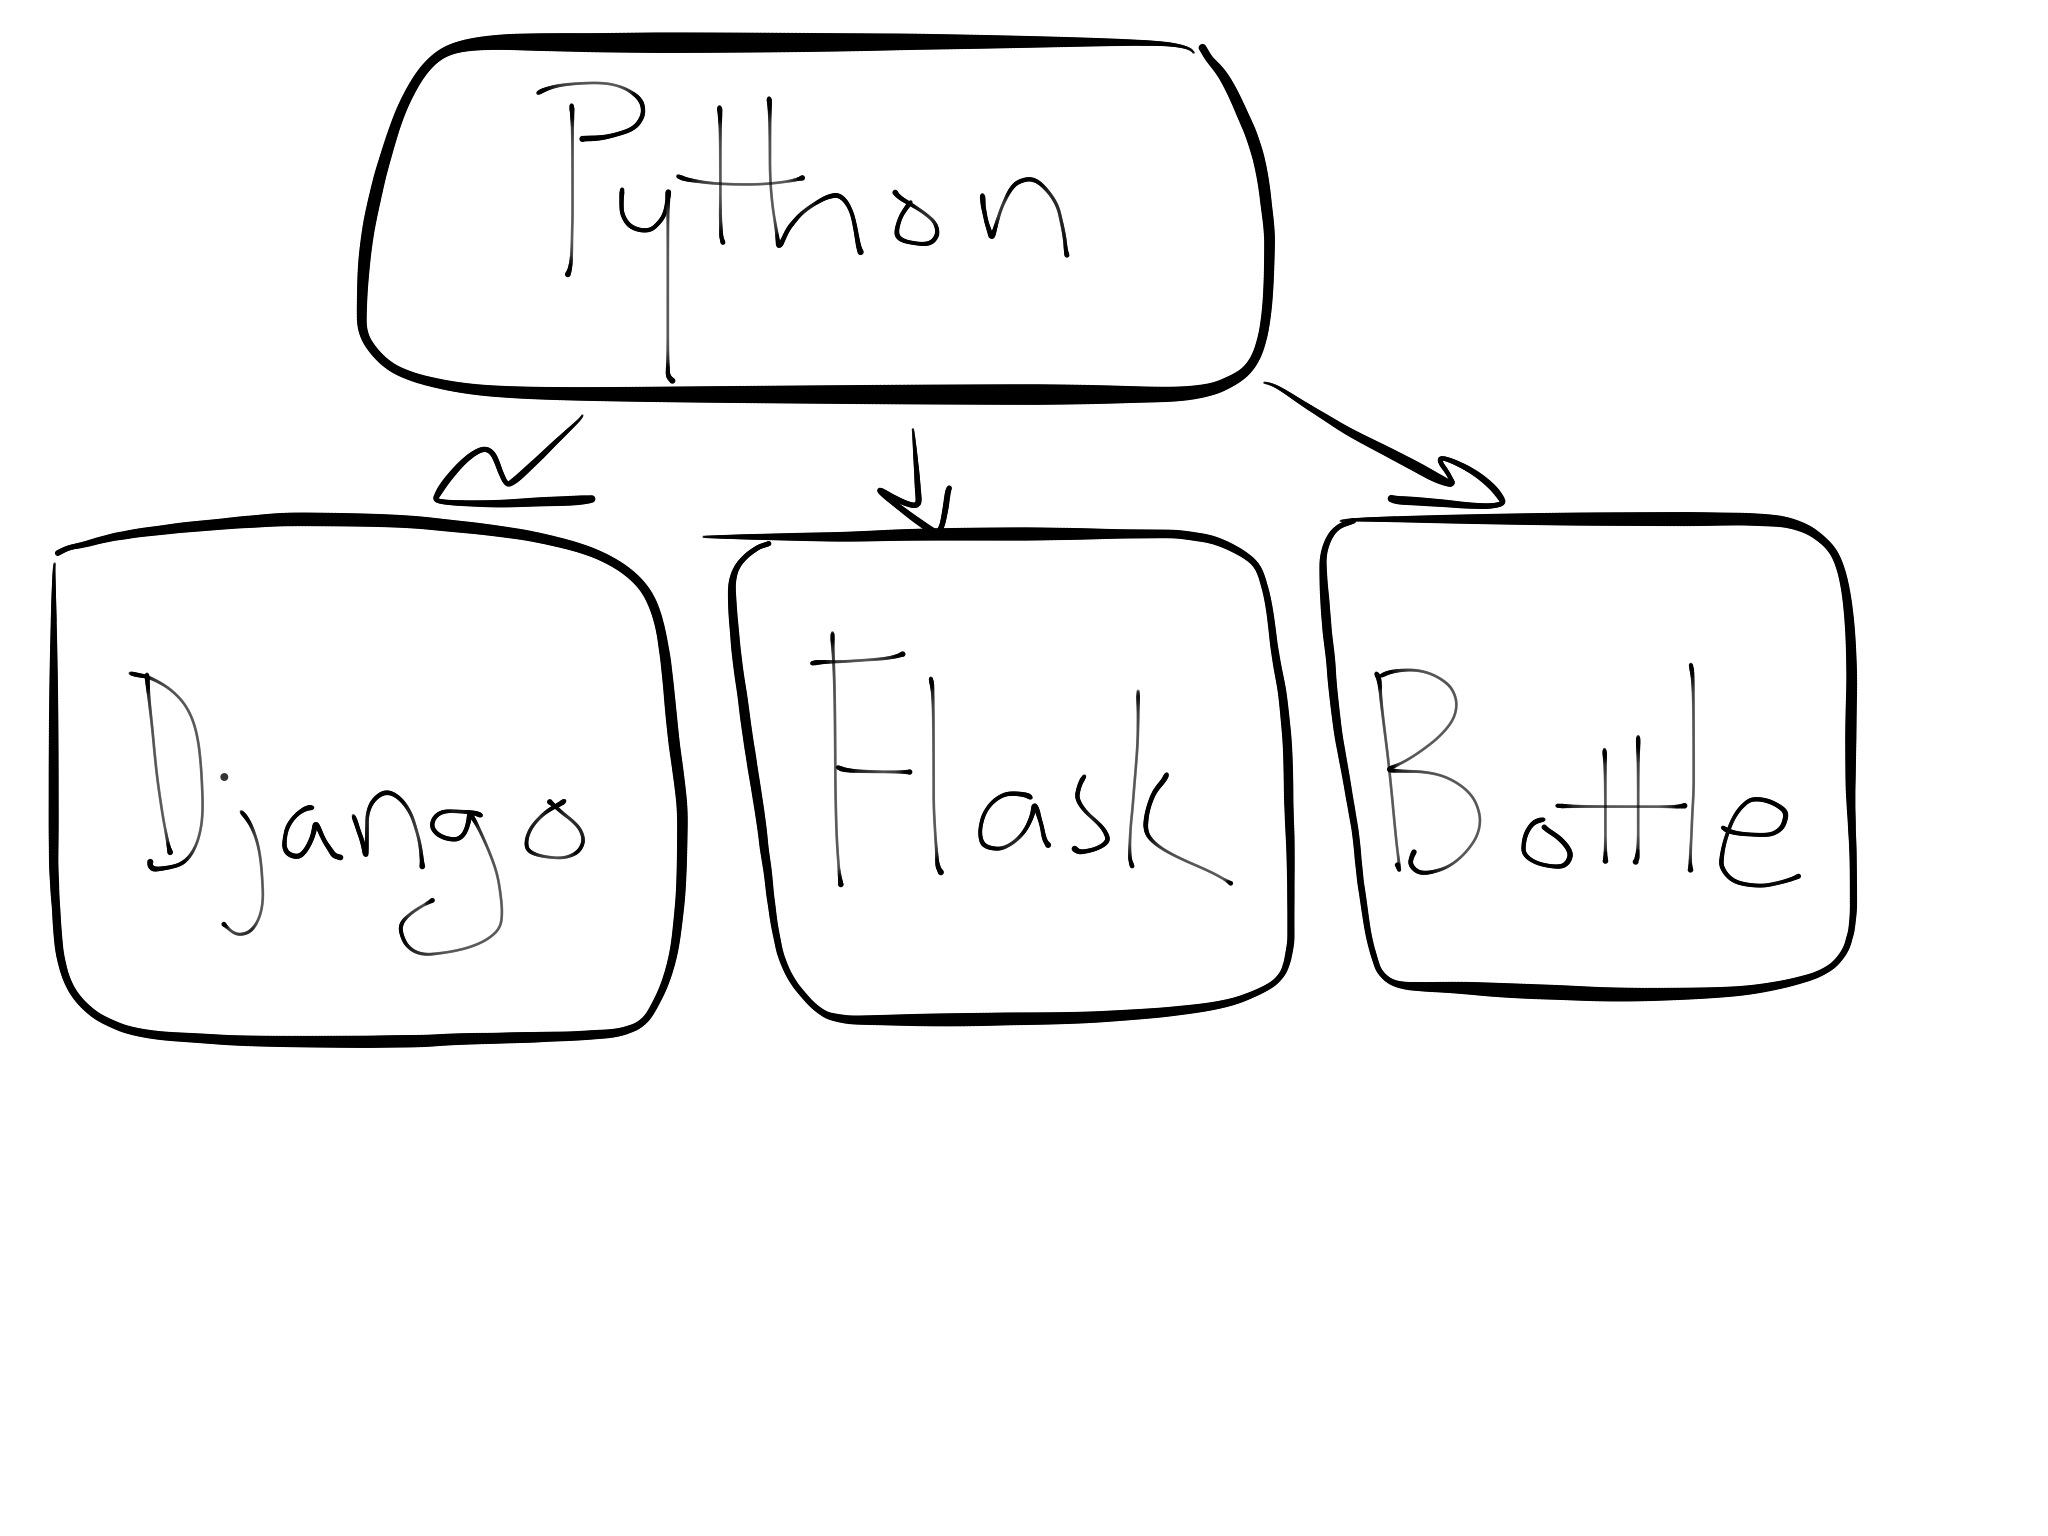 Python
Django
Flask
Bottle